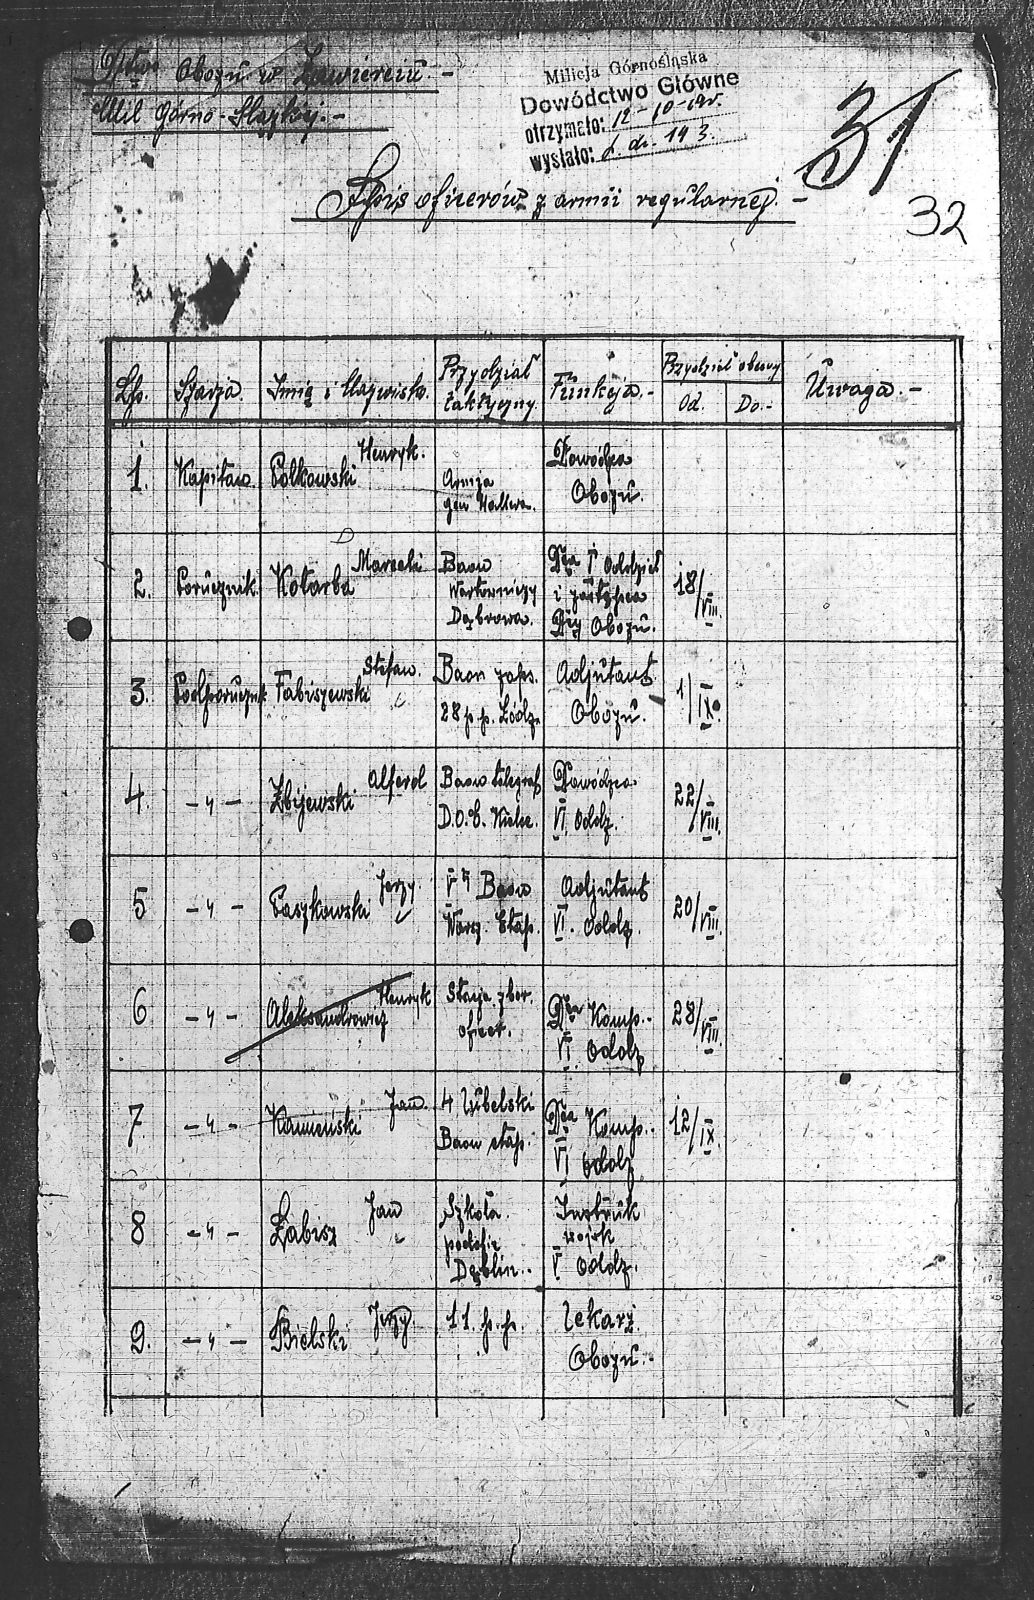 Dtwo Obozu w Zawierciu. -
Mil. Górno-Śląskiej. -
Milicja Górnośląska
Dowództwo Główne
otrzymało: 12-10-19r.
wysłało: L. dz. 143.
31
32
Spis oficerów z armii regularnej. -
Lp. Szarża. Imię i Nazwisko. Przydział taktyczny. Funkcja. - Przydział obecny Od. Do. - Uwaga. -
1. Kapitan. Polkowski Henryk. Armja gen Hallera. Dowódca Obozu.
2. Porucznik. Kotarba Marceli Baon Wartowniczy Dąbrowa. Dca I Oddział i zastępca Dcy Obozu. 18/VIII.
3. Podporucznik Fabiszewski Stefan. Baon zaps. 28 p. p. Łódź. Adjutant Obozu. 1/IX.
4 - " - Zbijewski Alfred Baon telegraf D.O.G. Kielce. Dowódca VI Oddz. 22/VIII.
5 - " - Paszkowski Jerzy V ty Baon Warsz. Etap. Adjutant VI. Oddz. 20/VIII.
6 - " - Aleksandrowicz Henryk Stacja zbor. oficer. Dca Komp. - VI Oddz 28/VIII.
7. - " - Kamieński Jan. 4 lubelski Baon etap. Dca Komp. - VI Oddz 12/IX.
8 - " - Łabisz Jan Szkoła. podofic Dęblin. - Instruk wojsk V Oddz.
9. - " - Bielski Jerzy 11. p. p. Lekarz. Obozu. -